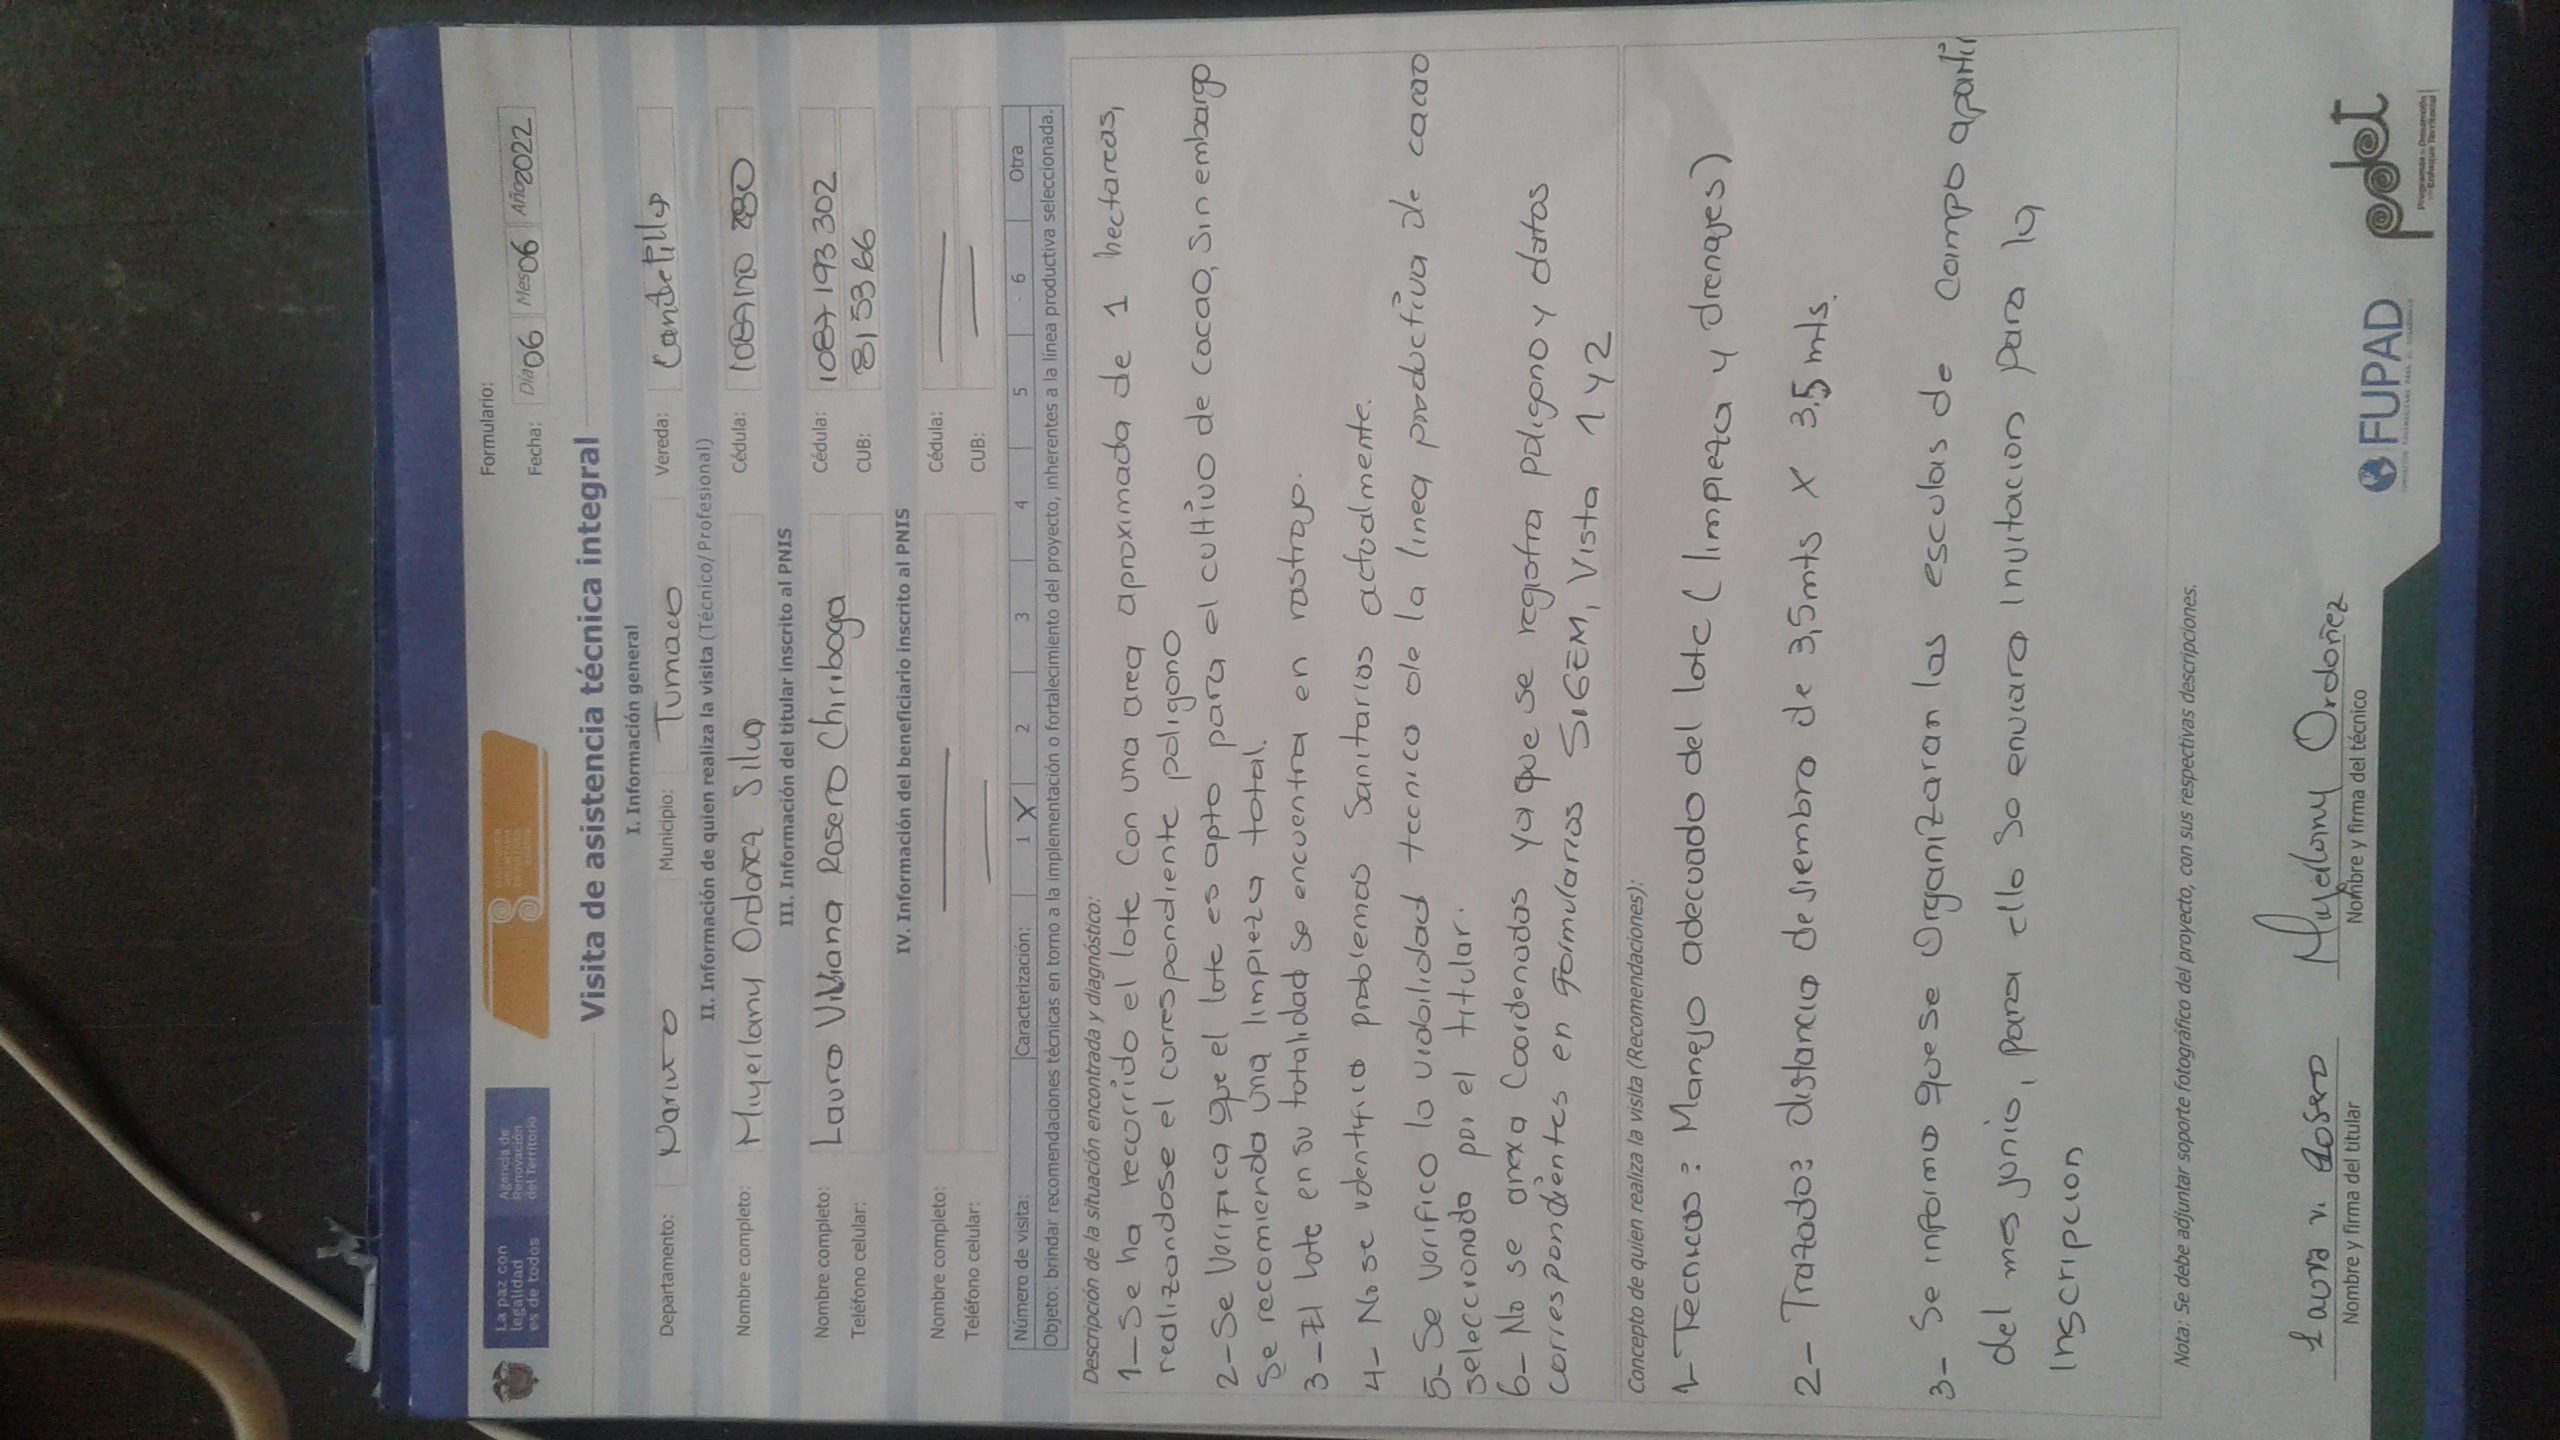 La paz con
legalidad
es de todos
Agencia de
Renovación
del Territorio
Formulario:
Fecha: Día 06 Mes 06 Año 2022
Visita de asistencia técnica integral
I. Información general
Departamento: Nariño Municipio: Tumaco Vereda: Candelilla
II. Información de quien realiza la visita (Técnico/Profesional)
Nombre completo: Miyerlany Ordoñez Silva Cédula:
III. Información del titular inscrito al PNIS
Nombre completo: Laura Viviana Rosero Chiriboga Cédula: 1087193302
Teléfono celular: CUB: 8153366
IV. Información del beneficiario inscrito al PNIS
Nombre completo: Cédula:
Teléfono celular: CUB:
Número de visita: Caracterización: 1 X 2 3 4 5 6 Otra
Objeto: brindar recomendaciones técnicas en torno a la implementación o fortalecimiento del proyecto, inherentes a la línea productiva seleccionada.
Descripción de la situación encontrada y diagnóstico:
1- Se ha recorrido el lote con una area aproximada de 1 hectareas,
realizandose el correspondiente poligono
2- Se Verifica que el lote es apto para el cultivo de cacao, sin embargo
se recomienda una limpieza total.
3- El lote en su totalidad se encuentra en rastrojo.
4- No se identifico problemas Sanitarios actualmente.
5- Se Verifico la viabilidad tecnico de la linea productiva de cacao
seleccionada por el titular.
6- No se anexa Coordenadas ya que se registra poligono y datos
correspondientes en Formularios SIGEM, Vista 1 y 2
Concepto de quien realiza la visita (Recomendaciones):
1- Tecnicos: Manejo adecuado del lote (limpieza y drenajes)
2- Trazado: distancia de siembra de 3,5mts x 3,5 mts.
3- Se informo que se Organizaran las esculas de campo apartir
del mes junio, para ello se enviara invitacion para la
Inscripcion
Nota: Se debe adjuntar soporte fotográfico del proyecto, con sus respectivas descripciones.
Laura v. Rosero
Nombre y firma del titular
Miyerlany Ordoñez
Nombre y firma del técnico
FUPAD
pdet
Programas de Desarrollo
con Enfoque Territorial